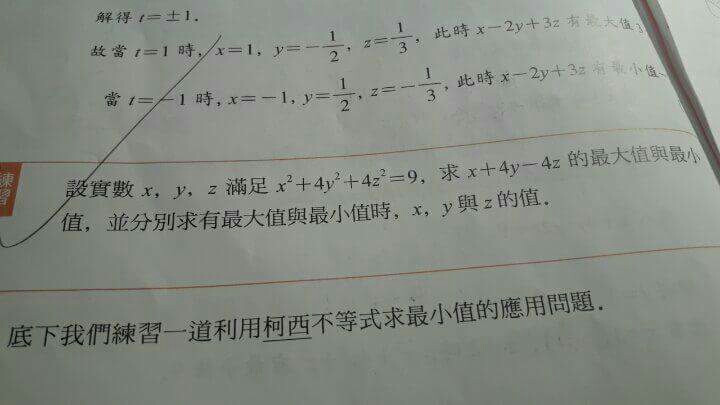 解得 t=±1.
故當 t=1 時, x=1, y=-1/2, z=1/3, 此時 x-2y+3z 有最大值3
當 t=-1 時, x=-1, y=1/2, z=-1/3, 此時 x-2y+3z 有最小值
練習
設實數 x, y, z 滿足 x²+4y²+4z²=9, 求 x+4y-4z 的最大值與最小
值, 並分別求有最大值與最小值時, x, y 與 z 的值.
底下我們練習一道利用柯西不等式求最小值的應用問題.